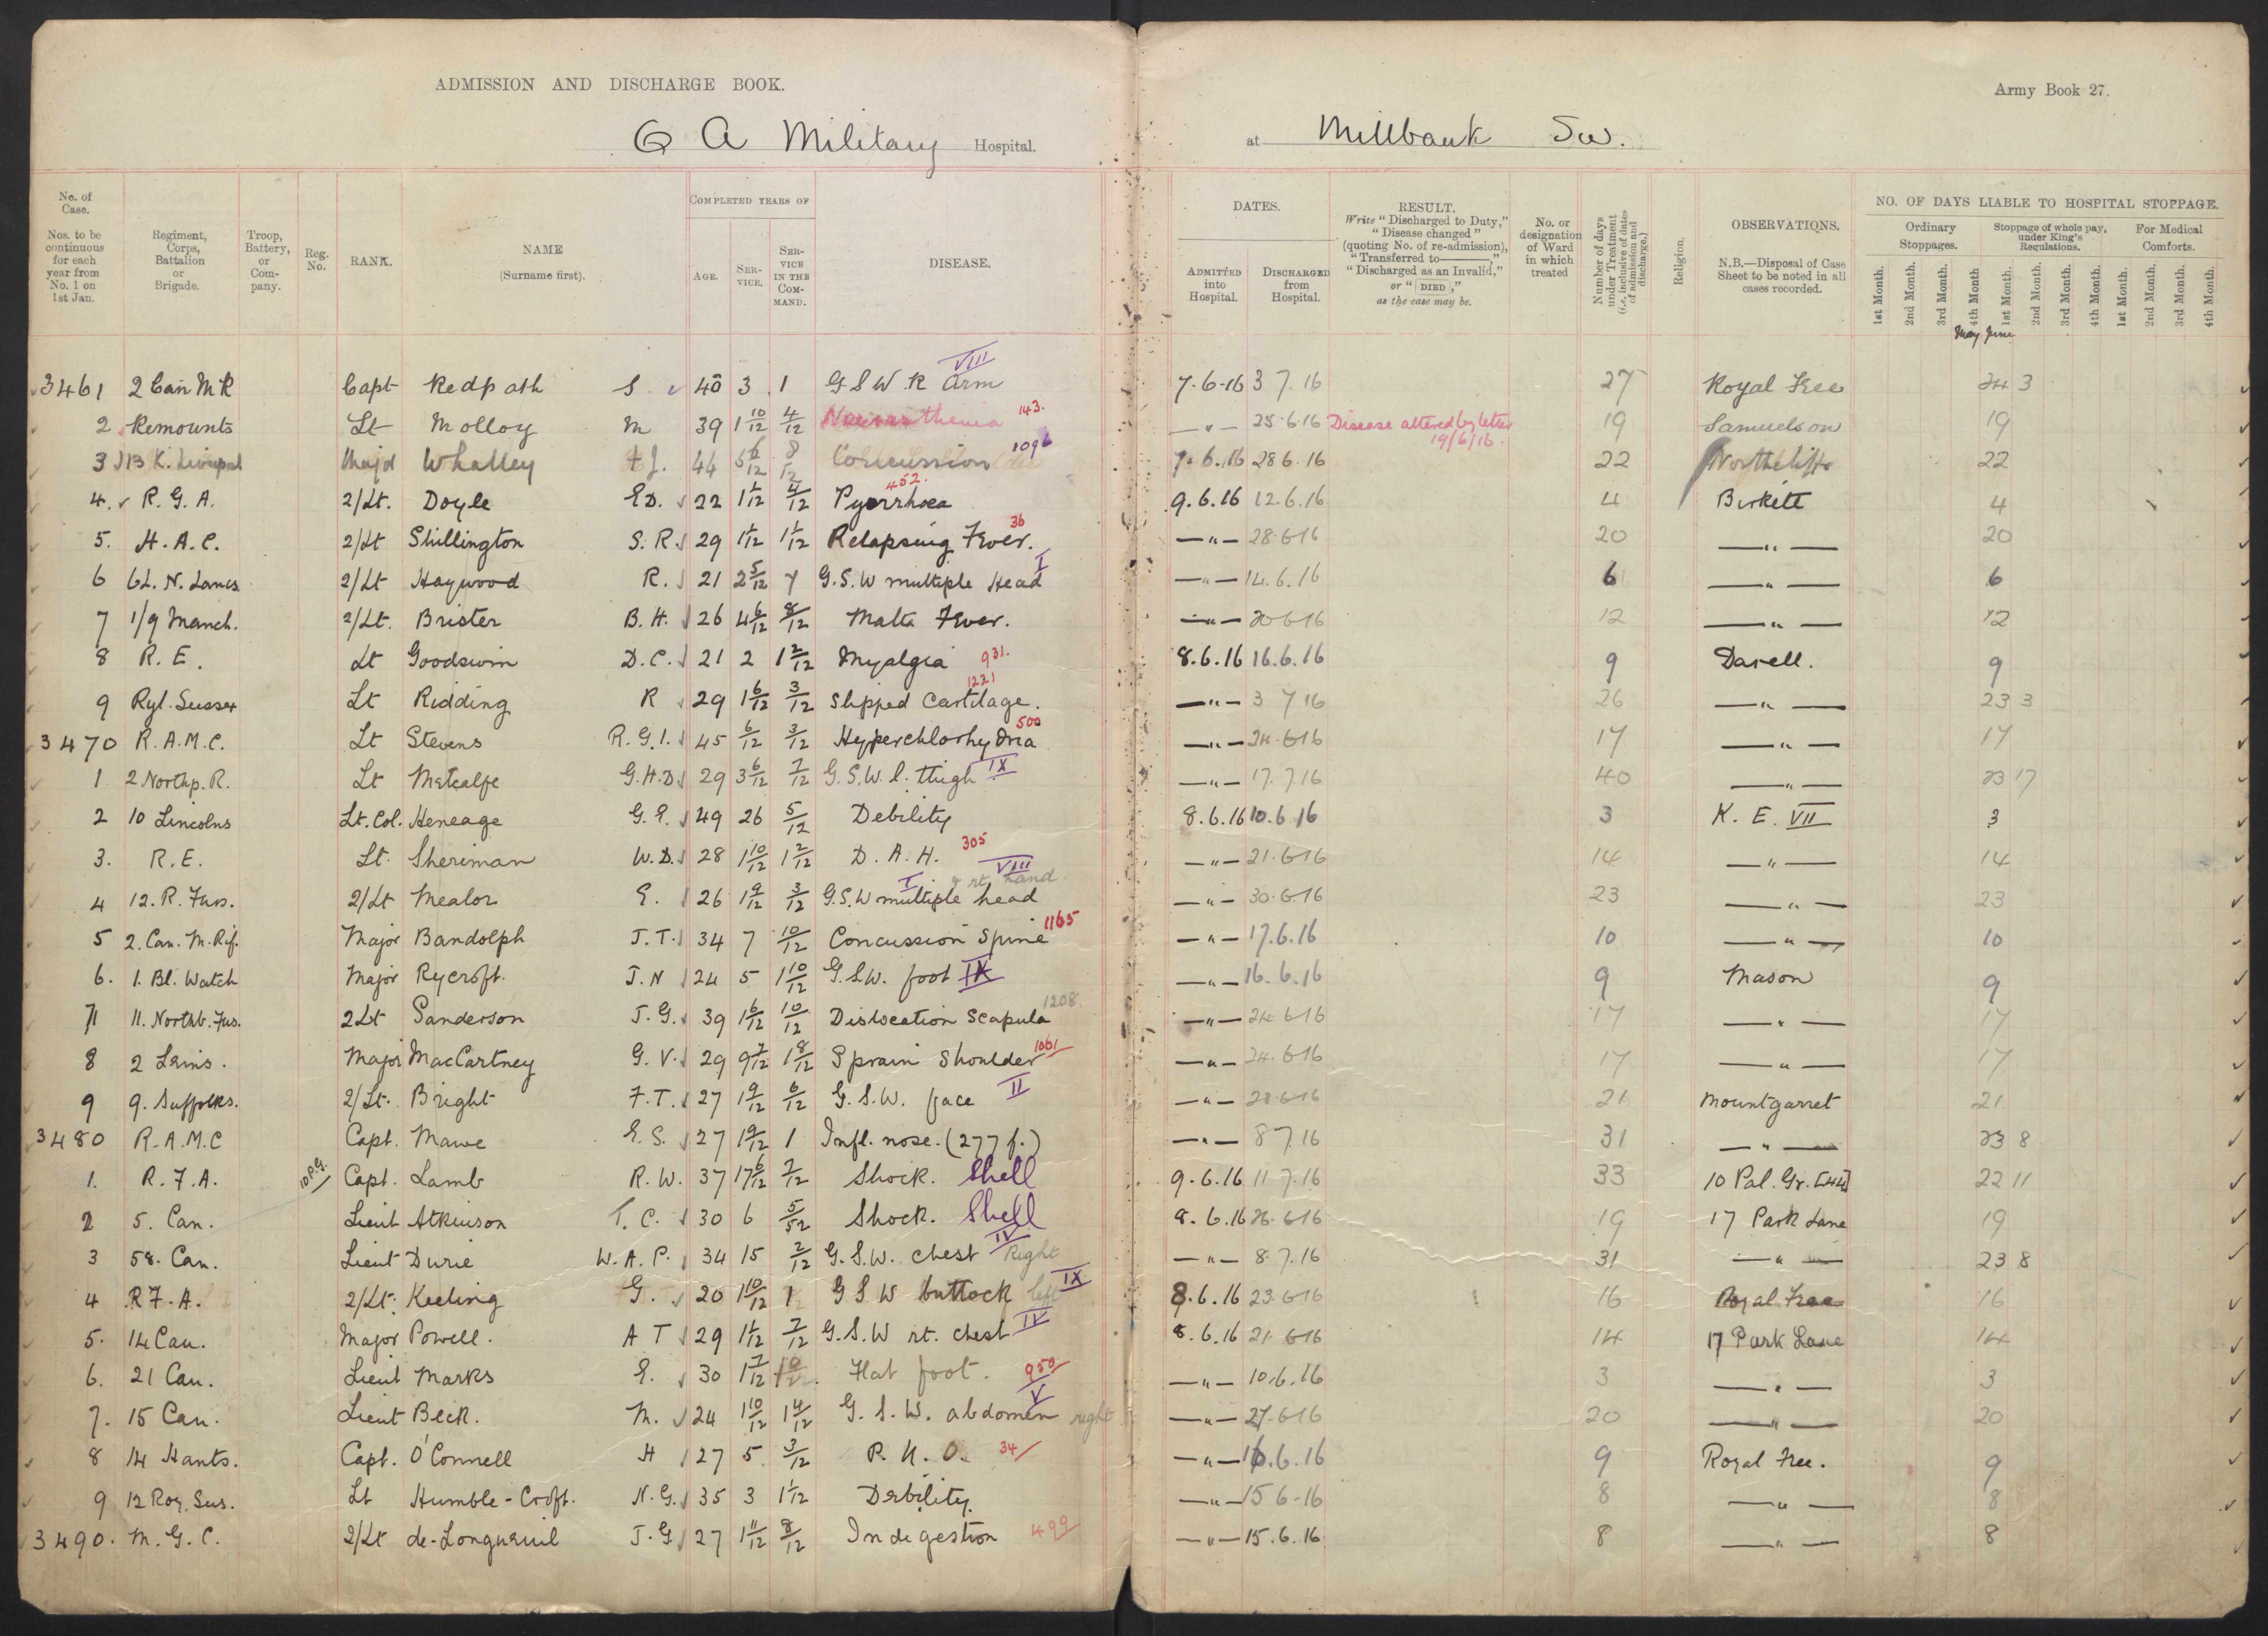 ADMISSION AND DISCHARGE BOOK.
Army Book 27.
Q A Military Hospital. at Millbank SW.
No. of Case. Nos. to be continuous for each year from No. 1 on 1st Jan.
Regiment, Corps, Battalion or Brigade.
Troop, Battery, or Company.
Reg. No.
RANK.
NAME (Surname first).
COMPLETED YEARS OF
AGE.
SERVICE.
SERVICE IN THE COMMAND.
DISEASE.
DATES.
ADMITTED into Hospital.
DISCHARGED from Hospital.
RESULT. Write "Discharged to Duty," "Disease changed" (quoting No. of re-admission), "Transferred to ———," "Discharged as an Invalid," or "DIED," as the case may be.
No. or designation of Ward in which treated
Number of days under Treatment (i.e. inclusive of dates of admission and discharge.)
Religion.
OBSERVATIONS. N.B.—Disposal of Case Sheet to be noted in all cases recorded.
NO. OF DAYS LIABLE TO HOSPITAL STOPPAGE.
Ordinary Stoppages.
Stoppage of whole pay, under King's Regulations.
For Medical Comforts.
1st Month. 2nd Month. 3rd Month. 4th Month 1st Month. 2nd Month. 3rd Month. 4th Month. 1st Month. 2nd Month. 3rd Month. 4th Month.
May June
3461 2 Can M R Capt Redpath S. 40 3 1 G S W R Arm VIII 7.6.16 3 7.16 27 Royal Free 24 3
2 Remounts Lt Molloy M 39 1 10/12 4/12 Neurasthenia 143. —"— 25.6.16 Disease altered by letter 19/6/16. 19 Samuelson 19
3 13 K. Liverpool Major Whalley 44 5 6/12 8/12 Concussion 1096 7.6.16 28 6.16 22 Northcliffe 22
4. R. G. A. 2/Lt. Doyle E D. 22 1 1/12 4/12 Pyorrhoea 452. 9.6.16 12.6.16 4 Birkett 4
5. H. A. C. 2/Lt Shillington S. R. 29 1 1/12 1 1/12 Relapsing Fever. 36 —"— 28.6.16 20 —"— 20
6 6 L. N. Lancs 2/Lt Haywood R. 21 2 5/12 7 G.S.W multiple Head I —"— 14.6.16 6 —"— 6
7 1/9 Manch. 2/Lt. Brister B. H. 26 4 6/12 8/12 Malta Fever. —"— 20 6 16 12 —"— 12
8 R. E. Lt Goodswin D. C. 21 2 1 2/12 Myalgia 931. 8.6.16 16.6.16 9 Darell. 9
9 Ryl. Sussex Lt Ridding R 29 1 6/12 3/12 Slipped Cartilage. 1221 —"— 3 7 16 26 —"— 23 3
3470 R.A.M.C. Lt Stevens R. G. I. 45 6/12 3/12 Hyperchlorhydria 500 —"— 24.6.16 17 —"— 17
1 2 Northp. R. Lt Metcalfe G. H. D. 29 3 6/12 7/12 G.S.W. l. thigh IX —"— 17.7.16 40 —"— 23 17
2 10 Lincolns Lt. Col. Heneage G. E. 49 26 5/12 Debility 8.6.16 10.6.16 3 K. E. VII 3
3. R.E. Lt. Sherriman W. D. 28 1 10/12 1 2/12 D. A. H. 305 —"— 21.6.16 14 —"— 14
4 12. R. Fus. 2/Lt Mealor E. 26 1 9/12 3/12 G.S.W multiple head I & rt. hand VIII —"— 30.6.16 23 —"— 23
5 2. Can. M. Rif. Major Bandolph J. T. 34 7 10/12 Concussion Spine 1165 —"— 17.6.16 10 —"— 10
6. 1. Bl. Watch Major Rycroft. J. N 24 5 1 10/12 G.S.W. foot IX —"— 16.6.16 9 Mason 9
7 11. Northb. Fus. 2Lt Sanderson J. G. 39 1 6/12 10/12 Dislocation Scapula 1208. —"— 24.6.16 17 —"— 17
8 2 Leins. Major MacCartney G. V. 29 9 7/12 1 8/12 Sprain Shoulder 1061 —"— 24.6.16 17 —"— 17
9 9. Suffolks. 2/Lt. Bright F. T. 27 1 9/12 6/12 G.S.W. face II —"— 28.6.16 21 Mountgarret 21
3480 R.A.M.C Capt. Mawe E. S. 27 1 9/12 1 Infl. nose. (277 f.) —"— 8 7.16 31 —"— 23 8
1. R.F.A. Capt. Lamb R. W. 37 17 6/12 7/12 Shock. Shell 9.6.16 11.7.16 33 10 Pal. Gr. [44] 22 11
2 5. Can. Lieut Atkinson T. C. 30 6 5/52 Shock. Shell 8.6.16 26.6.16 19 17 Park Lane 19
3 58. Can. Lieut Durie W. A. P. 34 15 2/12 G.S.W. chest Right IV —"— 8.7.16 31 —"— 23 8
4 R F. A. 2/Lt. Keeling G. 20 1 10/12 1 G S W buttock left IX 8.6.16 23.6.16 16 Royal Free 16
5. 14 Can. Major Powell. A T 29 1 1/12 7/12 G.S.W rt. chest IV 8.6.16 21.6.16 14 17 Park Lane 14
6. 21 Can. Lieut Marks E. 30 1 7/12 Flat foot. 950 —"— 10.6.16 3 —"— 3
7. 15 Can. Lieut Beck. M. 24 1 10/12 1 4/12 G.S.W. abdomen right V —"— 27.6.16 20 —"— 20
8 14 Hants. Capt. O'Connell H 27 5 3/12 P. U. O. 34 —"— 16.6.16 9 Royal Free. 9
9 12 Roy. Sus. Lt Humble-Croft. N. G. 35 3 1 1/12 Debility. —"— 15 6-16 8 —"— 8
3490. M. G. C. 2/Lt de-Longueuil J. G. 27 1 11/12 8/12 Indigestion 499 —"— 15.6.16 8 —"— 8